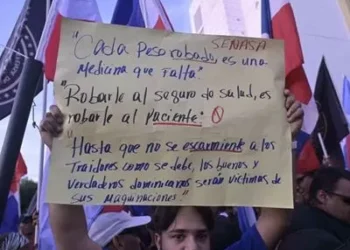 SENASA
"Cada peso robado, es una
medicina que falta"
"Robarle al seguro de salud, es
robarle al paciente:
"Hasta que no se escarmiente a los
Traidores como se debe, los buenos y
verdaderos dominicanos serán víctimas de
sus maquinaciones"